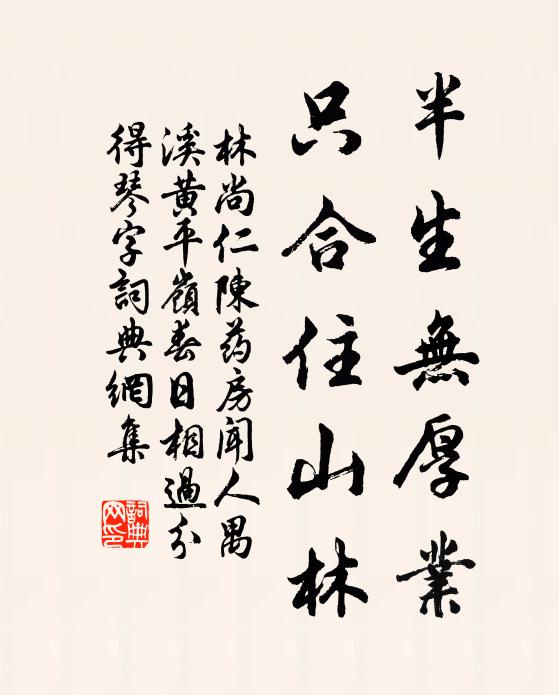 半生無厚業
只合住山林
林尚仁陳药房聞人禺
溪黄平嶺春日相過分
得琴字詞典網集
詞典
网印